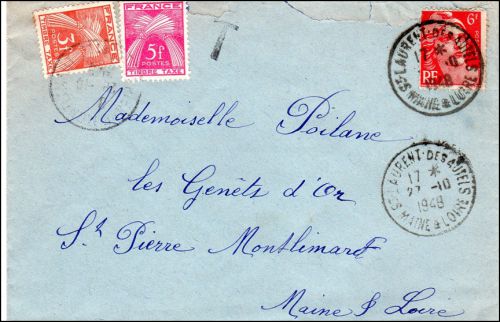 FRANCE
3f
POSTES
TIMBRE TAXE
FRANCE
5F
POSTES
TIMBRE TAXE
T
6F
RF
ST LAURENT-DES-AUTELS
17 *
-10
MAINE & LOIRE
Mademoiselle Poilane
les Genêts d'Or
St Pierre Montlimart
Maine & Loire
ST LAURENT-DES-AUTELS
17 *
27-10
1948
MAINE & LOIRE